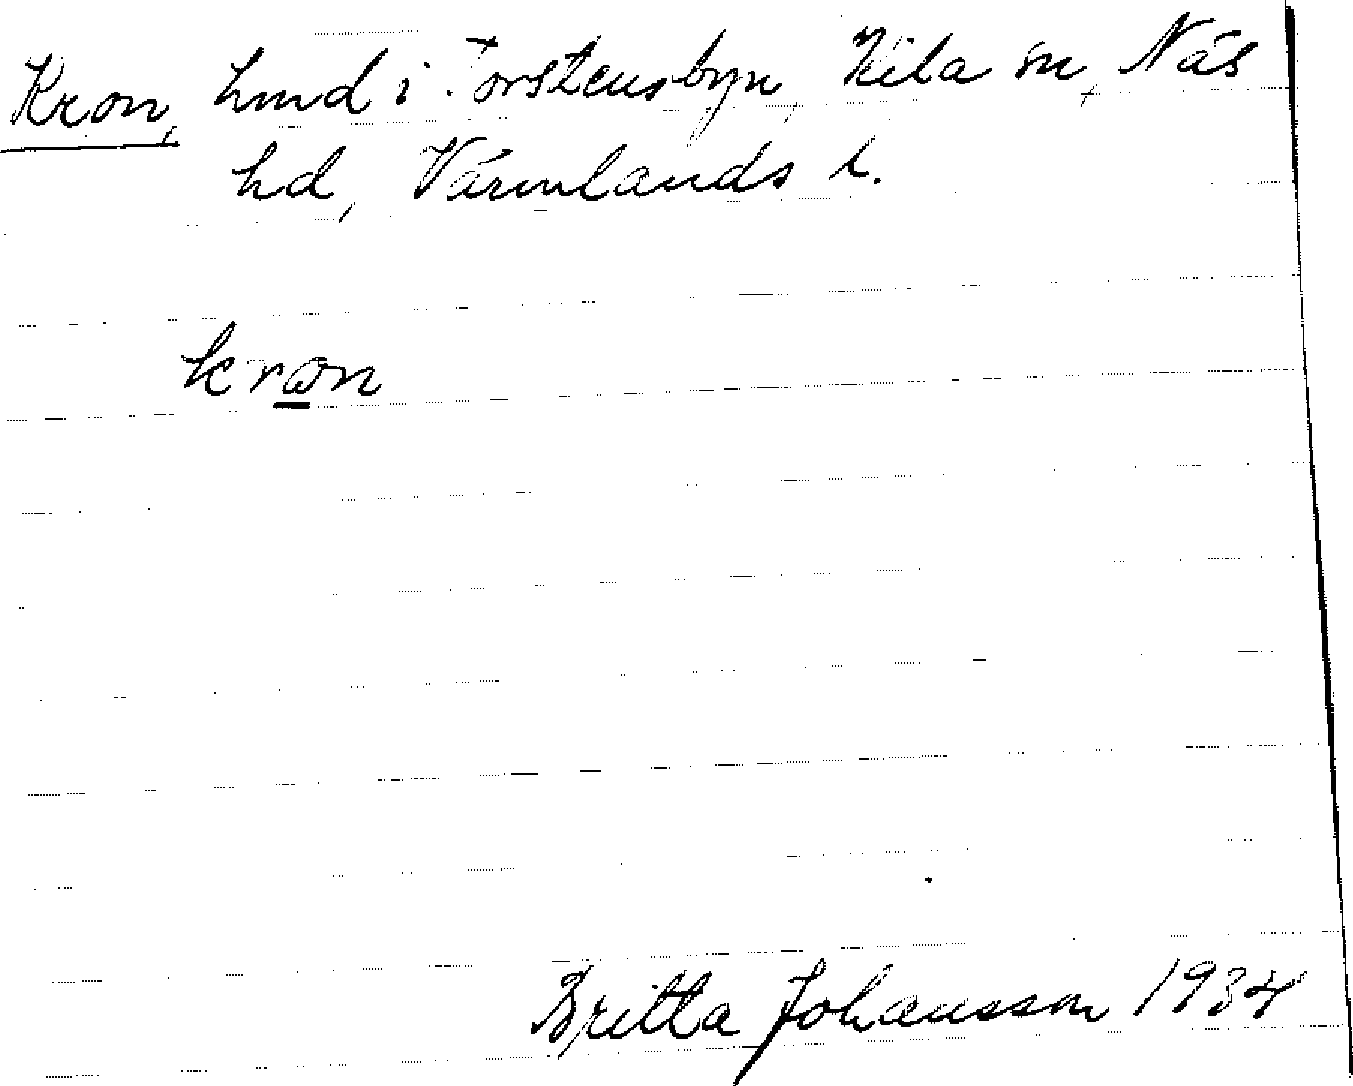 Kron, hmd i Torstensbyn, Kila sn, Näs
hd, Värmlands l.
kron
Britta Johansson 1934